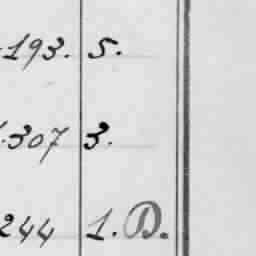 193. 5.
.307 3.
244 1. D.